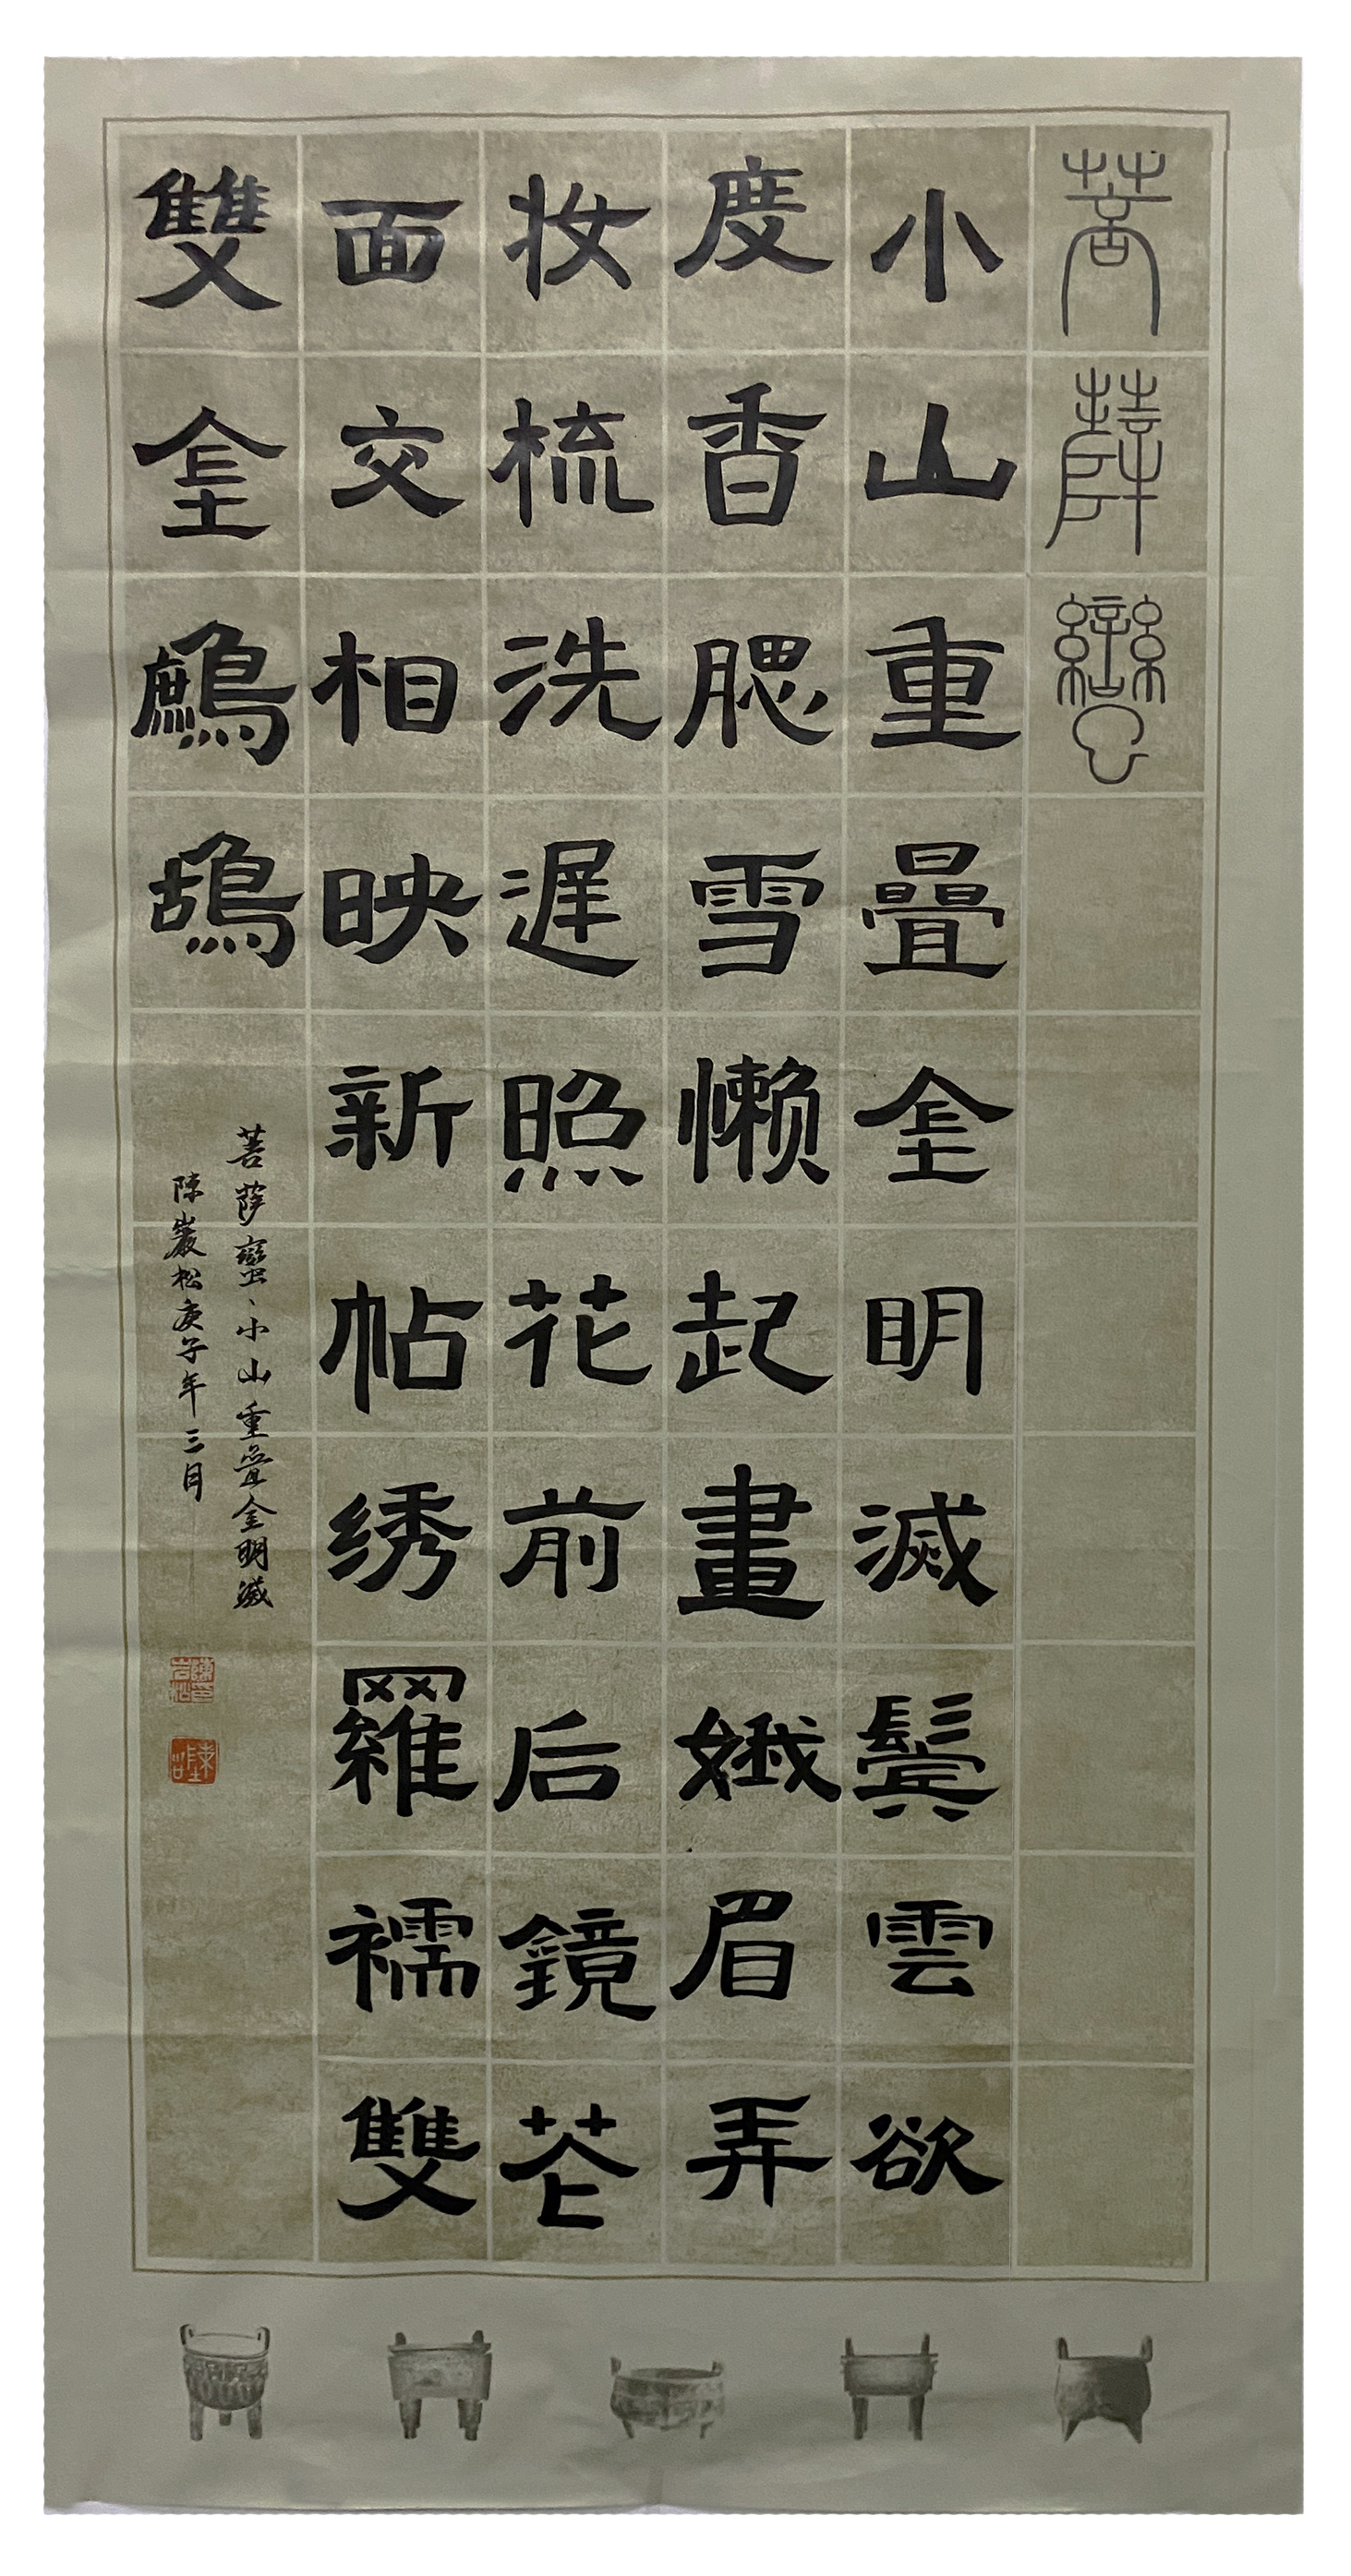 菩薩蠻
小山重疊金明滅鬓雲欲
度香腮雪懒起畫娥眉弄
妆梳洗遲照花前后鏡花
面交相映新帖绣羅襦雙
雙金鷓鴣
菩薩蠻、小山重疊金明滅
陳巖松庚子年三月